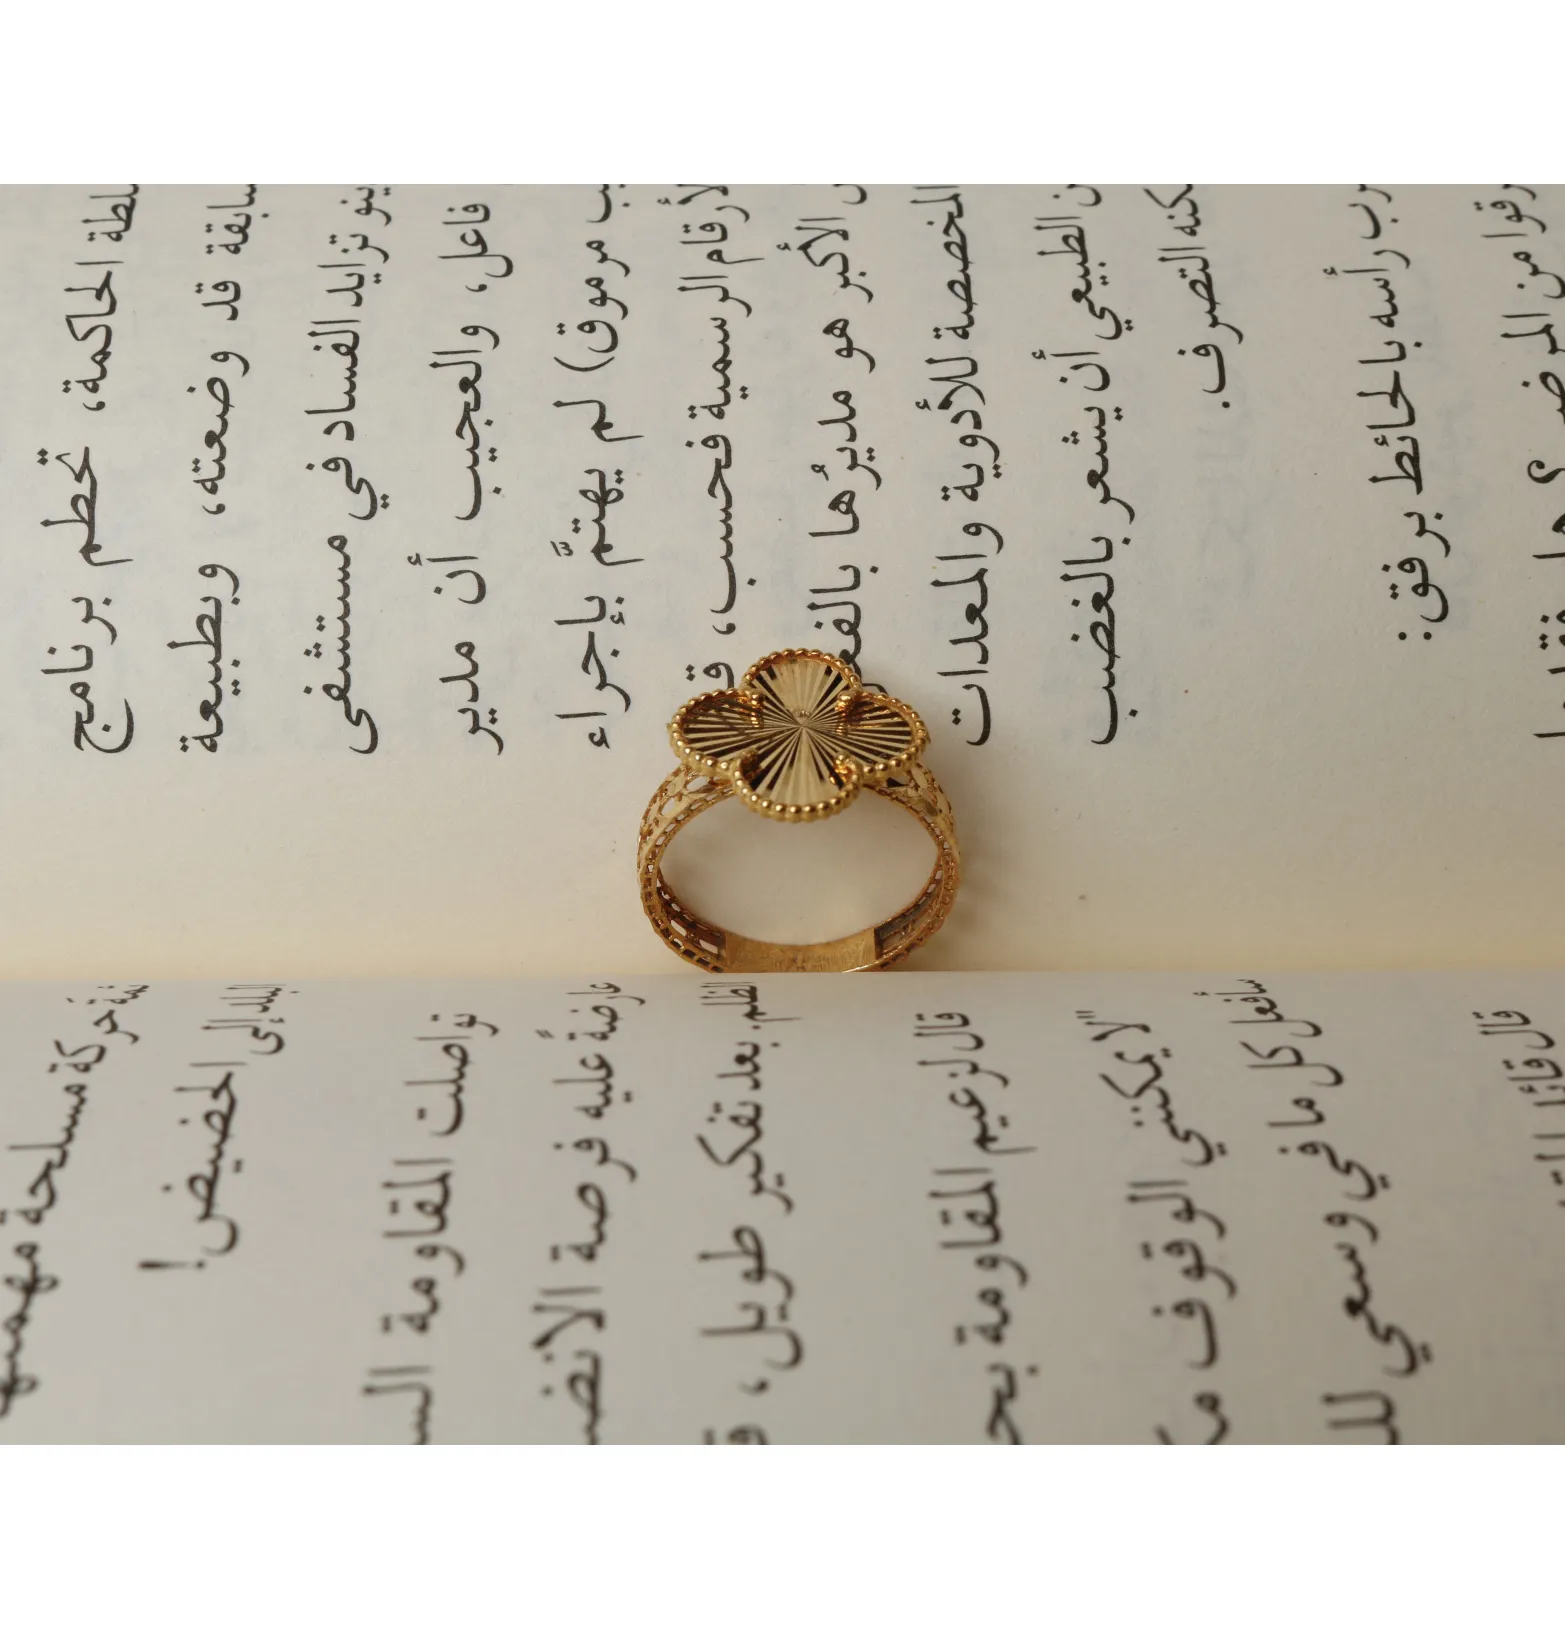 الحاكمة، تحطم برنامج
سابقة قد وضعته، وبطبيعة
تزايد الفساد في مستشفى
فاعل، والعجيب أن مدير
مرموق) لم يهتمَّ بإجراء
الأرقام الرسمية فحسب،
الأكبر هو مديرُها
المخصصة للأدوية والمعدات
الطبيعي أن يشعر بالغضب
التصرف.
رأسه بالحائط برفق:
من
حركة مسلحة
البلد إلى الحضيض!
تواصلت المقاومة
عارضةً عليه فرصة
الظلم. بعد تفكير طويل،
قال لزعيم المقاومة
"لا يمكنني الوقوف
سأفعل كل ما في وسعي
قال